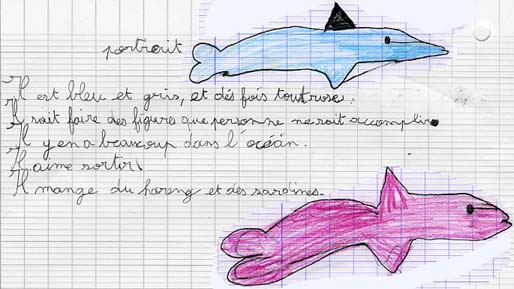 portrait
Il est bleu et gris, et dés fois tout rose.
Il sait faire des figures que personne ne sait accomplir.
Il y en a beaucoup dans l'océan.
Il aime sortir.
Il mange du hareng et des sardines.